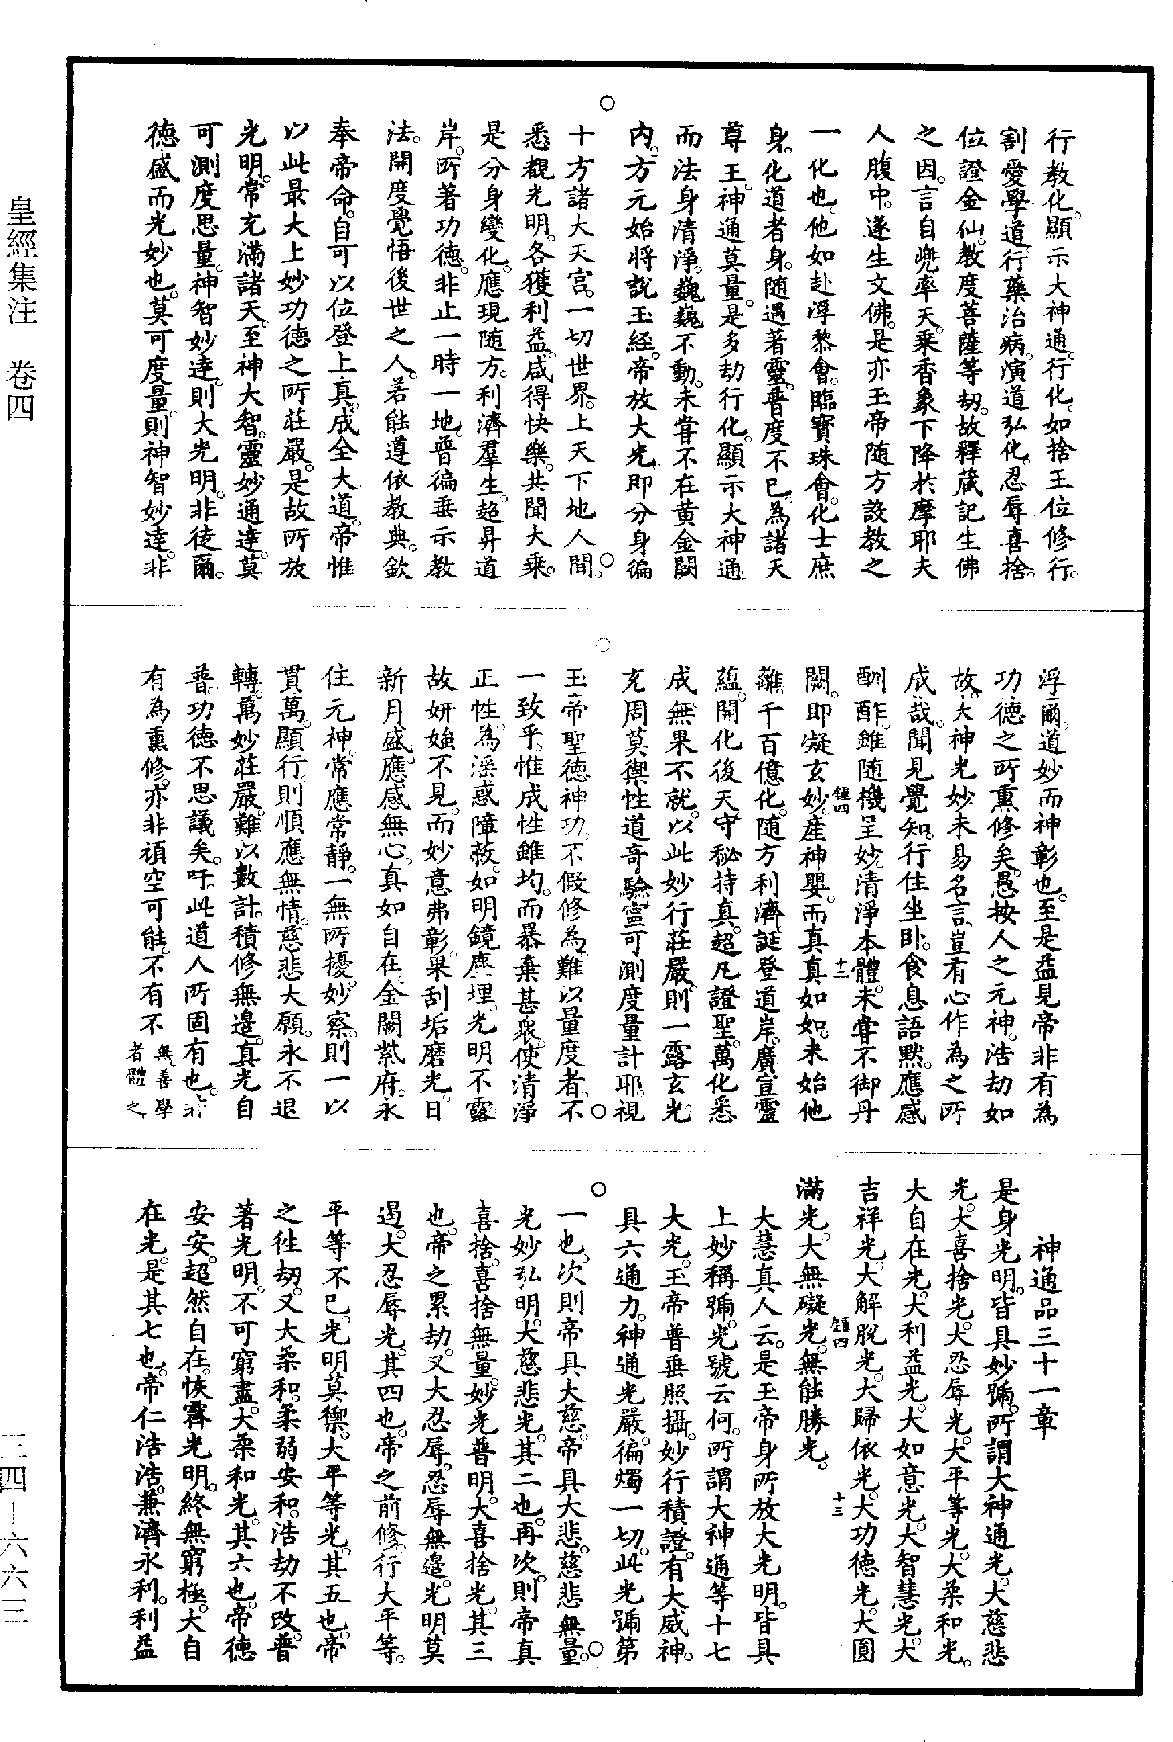 皇經集注　卷四
三四—六六三
行教化。顯示大神通。行化。如捨王位修行。
割愛學道。行藥治病。演道弘化。忍辱喜捨。
位證金仙。教度菩薩等劫。故釋藏記生佛
之因。言自兜率天。乘香象下降於摩耶夫
人腹中。遂生文佛。是亦玉帝隨方設教之
一化也。他如赴浮黎會。臨寶珠會。化士庶
身。化道者身。隨遇著靈。普度不已。為諸天
尊王。神通莫量。是多劫行化。顯示大神通
而法身清淨。巍巍不動。未嘗不在黃金闕
內。方元始將說玉經。帝放大光。即分身徧
十方諸大天宮。一切世界。上天下地人間。
悉覩光明。各獲利益。咸得快樂。共聞大乘。
是分身變化。應現隨方。利濟羣生。超昇道
岸。所著功德。非止一時一地。普徧垂示教
法。開度覺悟後世之人。若能遵依教典。欽
奉帝命。自可以位登上真。成全大道。帝惟
以此最大上妙功德之所莊嚴。是故所放
光明。常充滿諸天。至神大智。靈妙通達。莫
可測度思量。神智妙達。則大光明。非徒爾。
德盛而光妙也。莫可度量。則神智妙達。非
浮爾。道妙而神彰也。至是益見帝非有為
功德之所熏修矣。愚按人之元神。浩劫如
故。大神光妙未易名言。豈有心作為之所
成哉。聞見覺知。行住坐卧。食息語默。應感
酬酢。雖隨機呈妙。清淨本體。未嘗不御丹
闕。即凝玄妙。產神嬰。而真真如如。未始他
離。千百億化。隨方利濟。誕登道岸。廣宣靈
蘊。開化後天。守秘持真。超凡證聖。萬化悉
成。無果不就。以此妙行莊嚴。則一露玄光
充周莫禦。性道奇驗。豈可測度量計耶。視
玉帝聖德神功。不假修為。難以量度者。不
一致乎。惟成性雖均。而暴棄甚衆。使清淨
正性。為淫惑障蔽。如明鏡塵埋。光明不露
故妍媸不見。而妙意弗彰。果刮垢磨光。日
新月盛。應感無心。真如自在。金闕紫府。永
住元神。常應常靜。一無所擾。妙察。則一以
貫萬。顯行。則順應無情。慈悲大願。永不退
轉。萬妙莊嚴。難以數計。積修無邊。真光自
普。功德不思議矣。吁。此道人所固有也。非
有為熏修。亦非頑空可能。不有不無。善學
者體之
神通品三十一章
是身光明。皆具妙號。所謂大神通光。大慈悲
光。大喜捨光。大忍辱光。大平等光。大柔和光。
大自在光。大利益光。大如意光。大智慧光。大
吉祥光。大解脫光。大歸依光。大功德光。大圓
滿光。大無礙光。無能勝光。
大慧真人云。是玉帝身所放大光明。皆具
上妙稱號。光號云何。所謂大神通等十七
大光。玉帝普垂照攝。妙行積證。有大威神。
具六通力。神通光嚴。徧燭一切。此光號第
一也。次則帝具大慈。帝具大悲。慈悲無量。
光妙弘明。大慈悲光。其二也。再次。則帝真
喜捨。喜捨無量。妙光普明。大喜捨光。其三
也。帝之累劫。又大忍辱。忍辱無邊。光明莫
遏。大忍辱光。其四也。帝之前修。行大平等。
平等不已。光明莫禦。大平等光。其五也。帝
之往劫。又大柔和。柔弱安和。浩劫不改。普
著光明。不可窮盡。大柔和光。其六也。帝德
安安。超然自在。恢霽光明。終無窮極。大自
在光。是其七也。帝仁浩浩。兼濟永利。利益